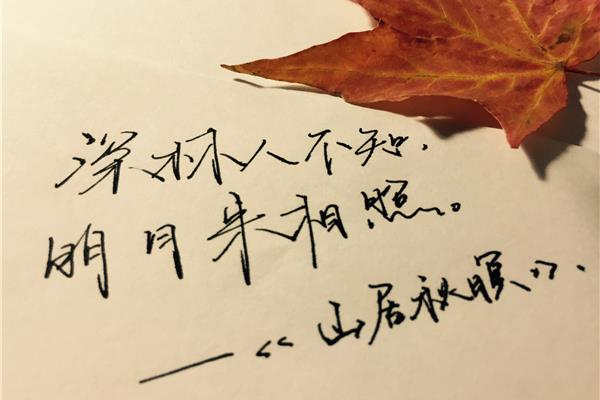 深林人不知,
明月来相照。
——《山居秋暝》.